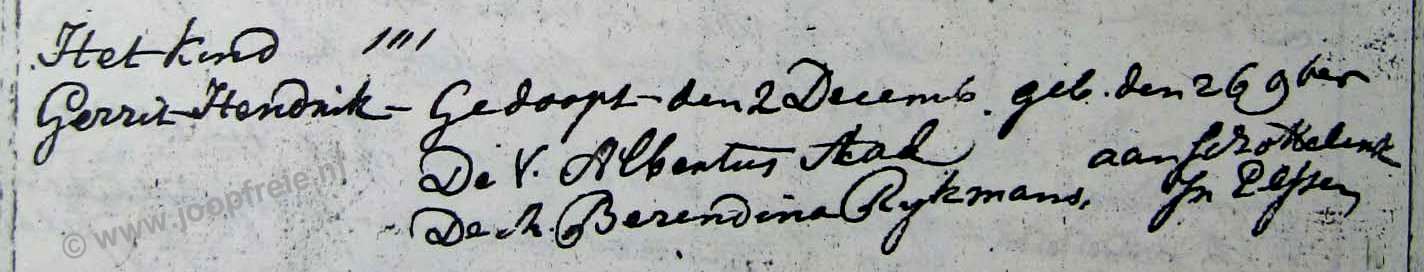 Het kind
Gerrit Hendrik - Gedoopt den 2 Decemb. geb. den 26 9ber
De V. Albertus aan
De M. Berendina Rykmans, In Elssen
© www.joopfreie.nl